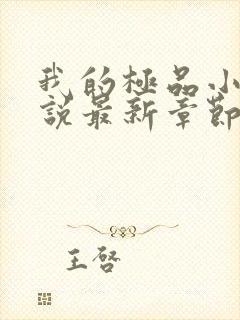 我的極品小
說最新章節
王啓